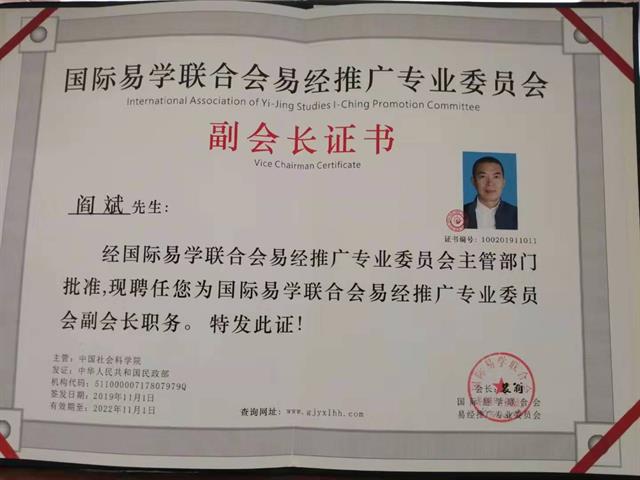 国际易学联合会易经推广专业委员会
International Association of Yi-Jing Studies I-Ching Promotion Committee
副会长证书
Vice Chairman Certificate
阎斌先生:
证书编号: 100201911011
经国际易学联合会易经推广专业委员会主管部门
批准,现聘任您为国际易学联合会易经推广专业委员
会副会长职务。 特发此证!
主管: 中国社会科学院
发证: 中华人民共和国民政部
机构代码: 51100000717807979Q
签发日期: 2019年11月1日
有效期至: 2022年11月1日
查询网址: www.gjyxlhh.com/
会长:
国际易学联合会
易经推广专业委员会